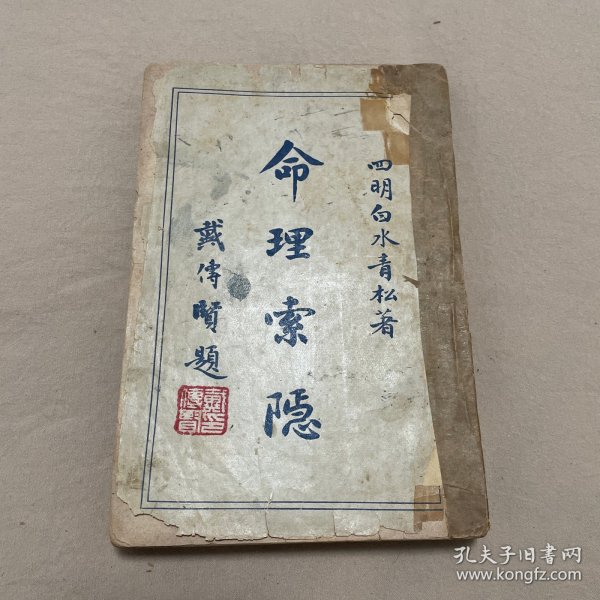 四明白水青松著
命理索隱
戴傳賢題
戴傳賢印
孔夫子旧书网
www.kongfz.com